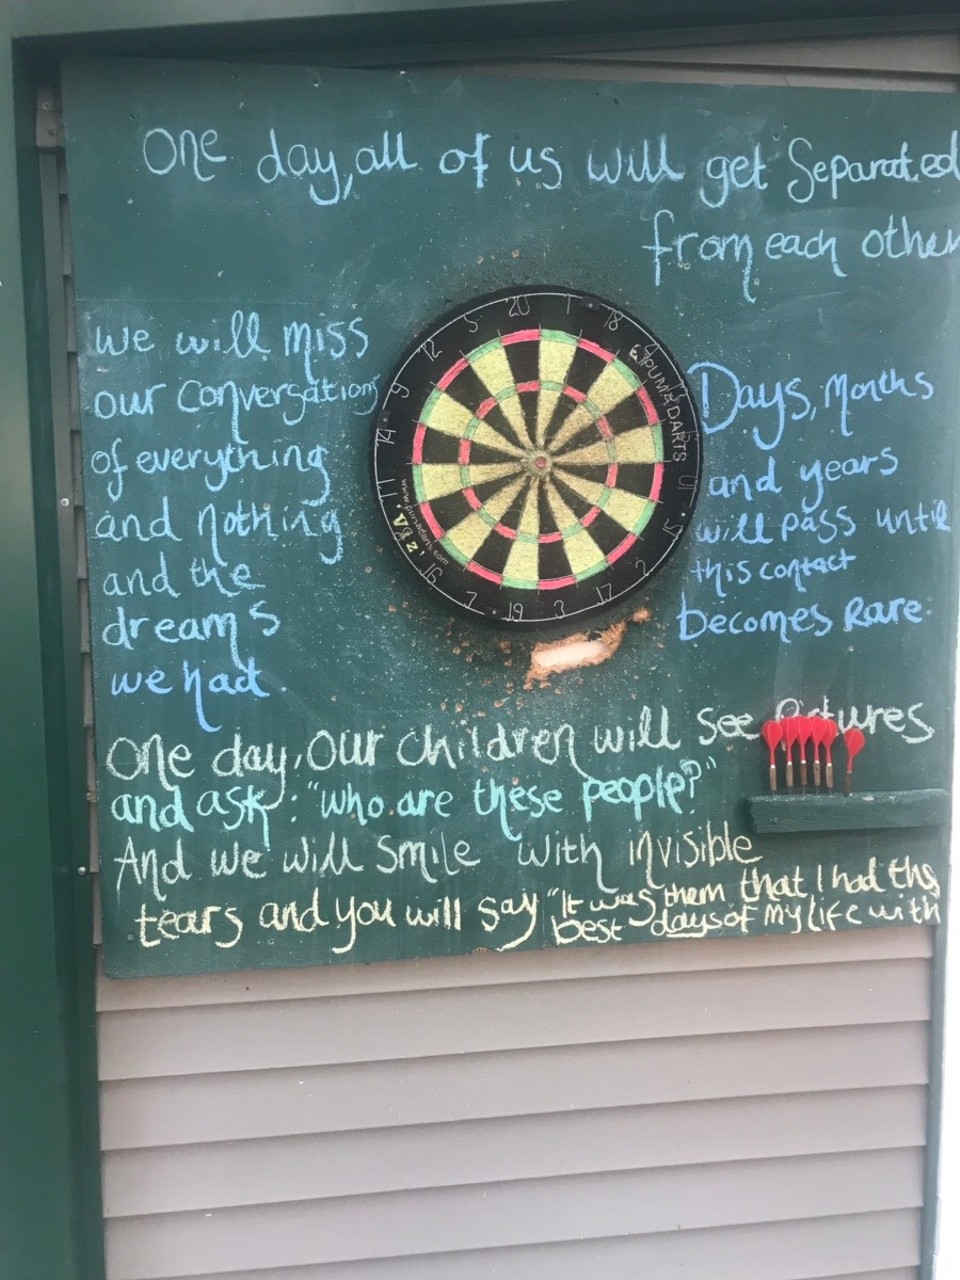 One day, all of us will get Separated
from each other
we will miss
our conversations
of everything
and nothing
and the
dreams
we had.
Days, Months
and years
will pass until
this contact
becomes Rare.
One day, our children will see Pictures
and ask: "who are these people?"
And we will Smile with invisible
tears and you will say "It was them that I had the
best days of my life with
20 1 18 4
PUMA DARTS
15 2 17 3 19 7 16
11 14 9 12 5
www.pumadarts.com